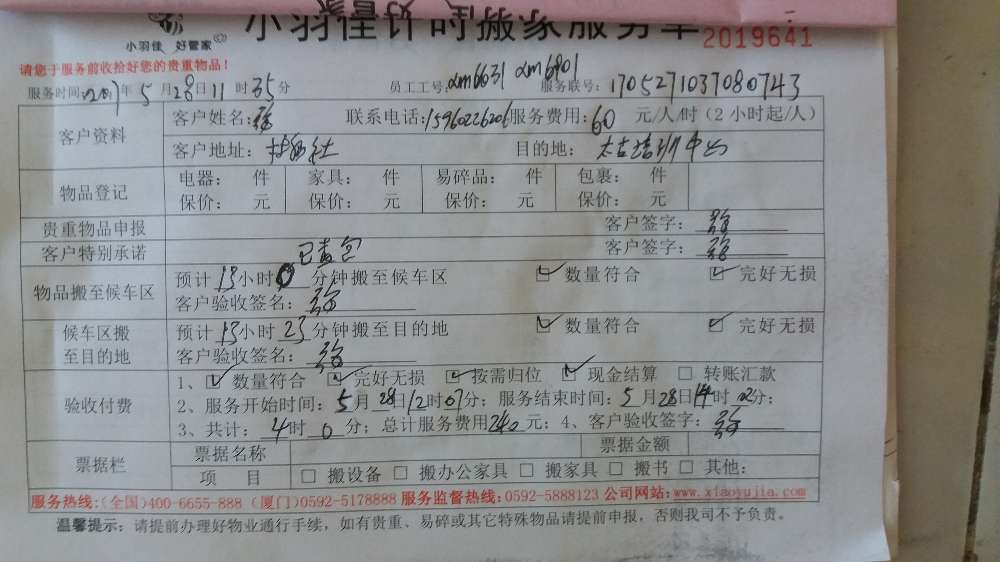 小羽佳计时搬家服务单 2019641
小羽佳 好管家
请您于服务前收拾好您的贵重物品!
服务时间:2017年5月28日11时35分 员工工号:xm6631 xm6901 服务联号:1705271037080743
客户资料 客户姓名: 联系电话:15960226206 服务费用:60 元/人/时(2小时起/人)
客户地址: 目的地:太古培训中心
物品登记 电器: 件 家具: 件 易碎品: 件 包裹: 件
保价: 元 保价: 元 保价: 元 保价: 元
贵重物品申报 客户签字:
客户特别承诺 已清包 客户签字:
物品搬至候车区 预计13小时0分钟搬至候车区 ☑数量符合 ☑完好无损
客户验收签名:
候车区搬至目的地 预计13小时23分钟搬至目的地 ☑数量符合 ☑完好无损
客户验收签名:
验收付费 1、☑数量符合 ☑完好无损 ☑按需归位 ☑现金结算 □转账汇款
2、服务开始时间:5月28日12时07分;服务结束时间:5月28日14时02分;
3、共计:4时0分;总计服务费用240元;4、客户验收签字:
票据栏 票据名称 票据金额
项 目 □搬设备 □搬办公家具 □搬家具 □搬书 □其他:
服务热线:(全国)400-6655-888 (厦门)0592-5178888 服务监督热线:0592-5888123 公司网站:www.xiaoyujia.com
温馨提示:请提前办理好物业通行手续,如有贵重、易碎或其它特殊物品请提前申报,否则我司不予负责。